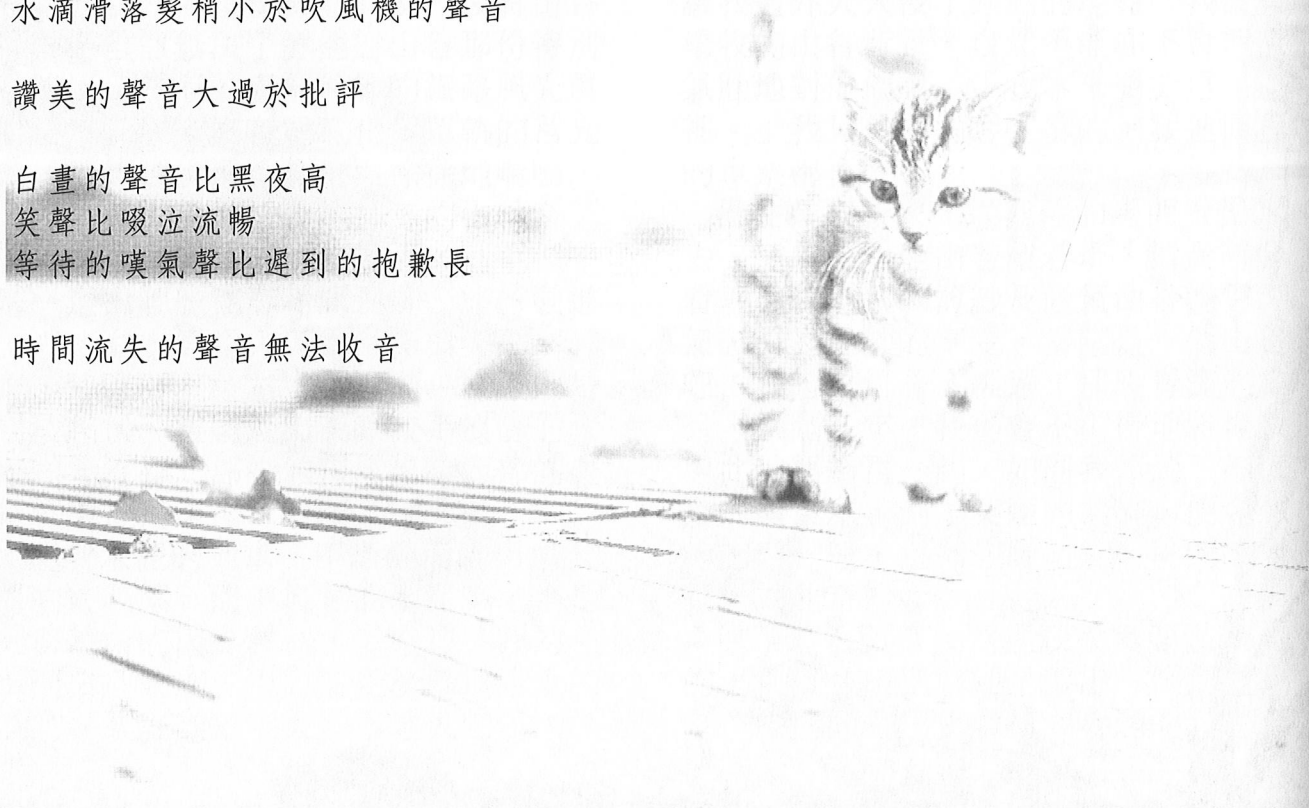 水滴滑落髮梢小於吹風機的聲音
讚美的聲音大過於批評
白晝的聲音比黑夜高
笑聲比啜泣流暢
等待的嘆氣聲比遲到的抱歉長
時間流失的聲音無法收音